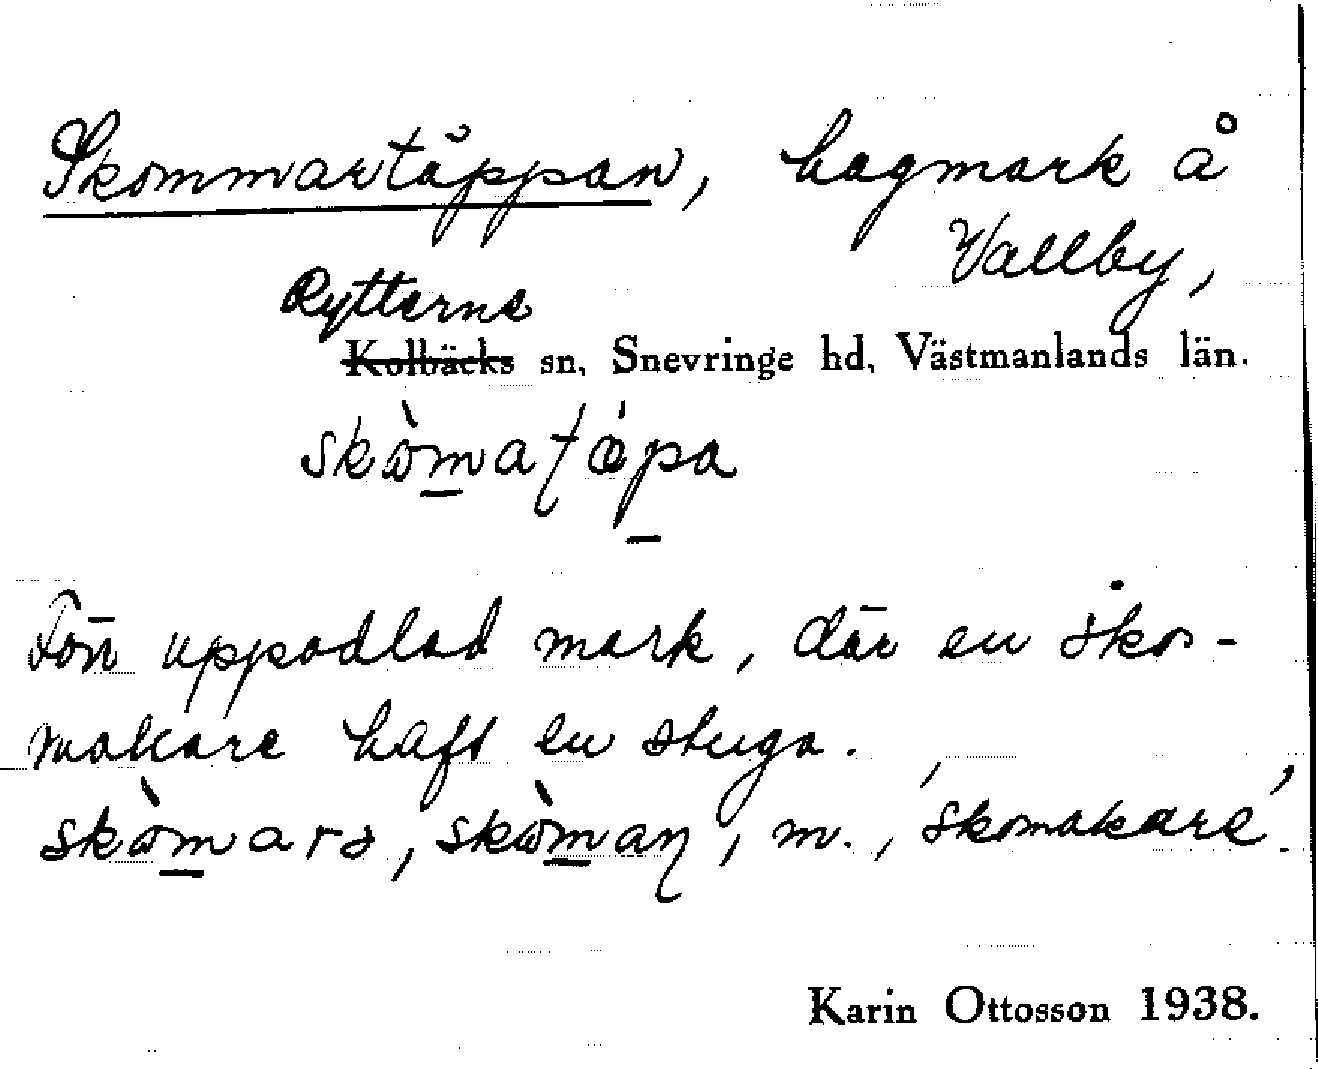 Skommartäppan, hagmark å
Vallby,
Rytterne
Kolbäcks sn, Snevringe hd, Västmanlands län.
skòmatǽpa
Förr uppodlad mark, där en sko-
makare haft en stuga.
skòmarə, skòman, m., 'skomakare'.
Karin Ottosson 1938.